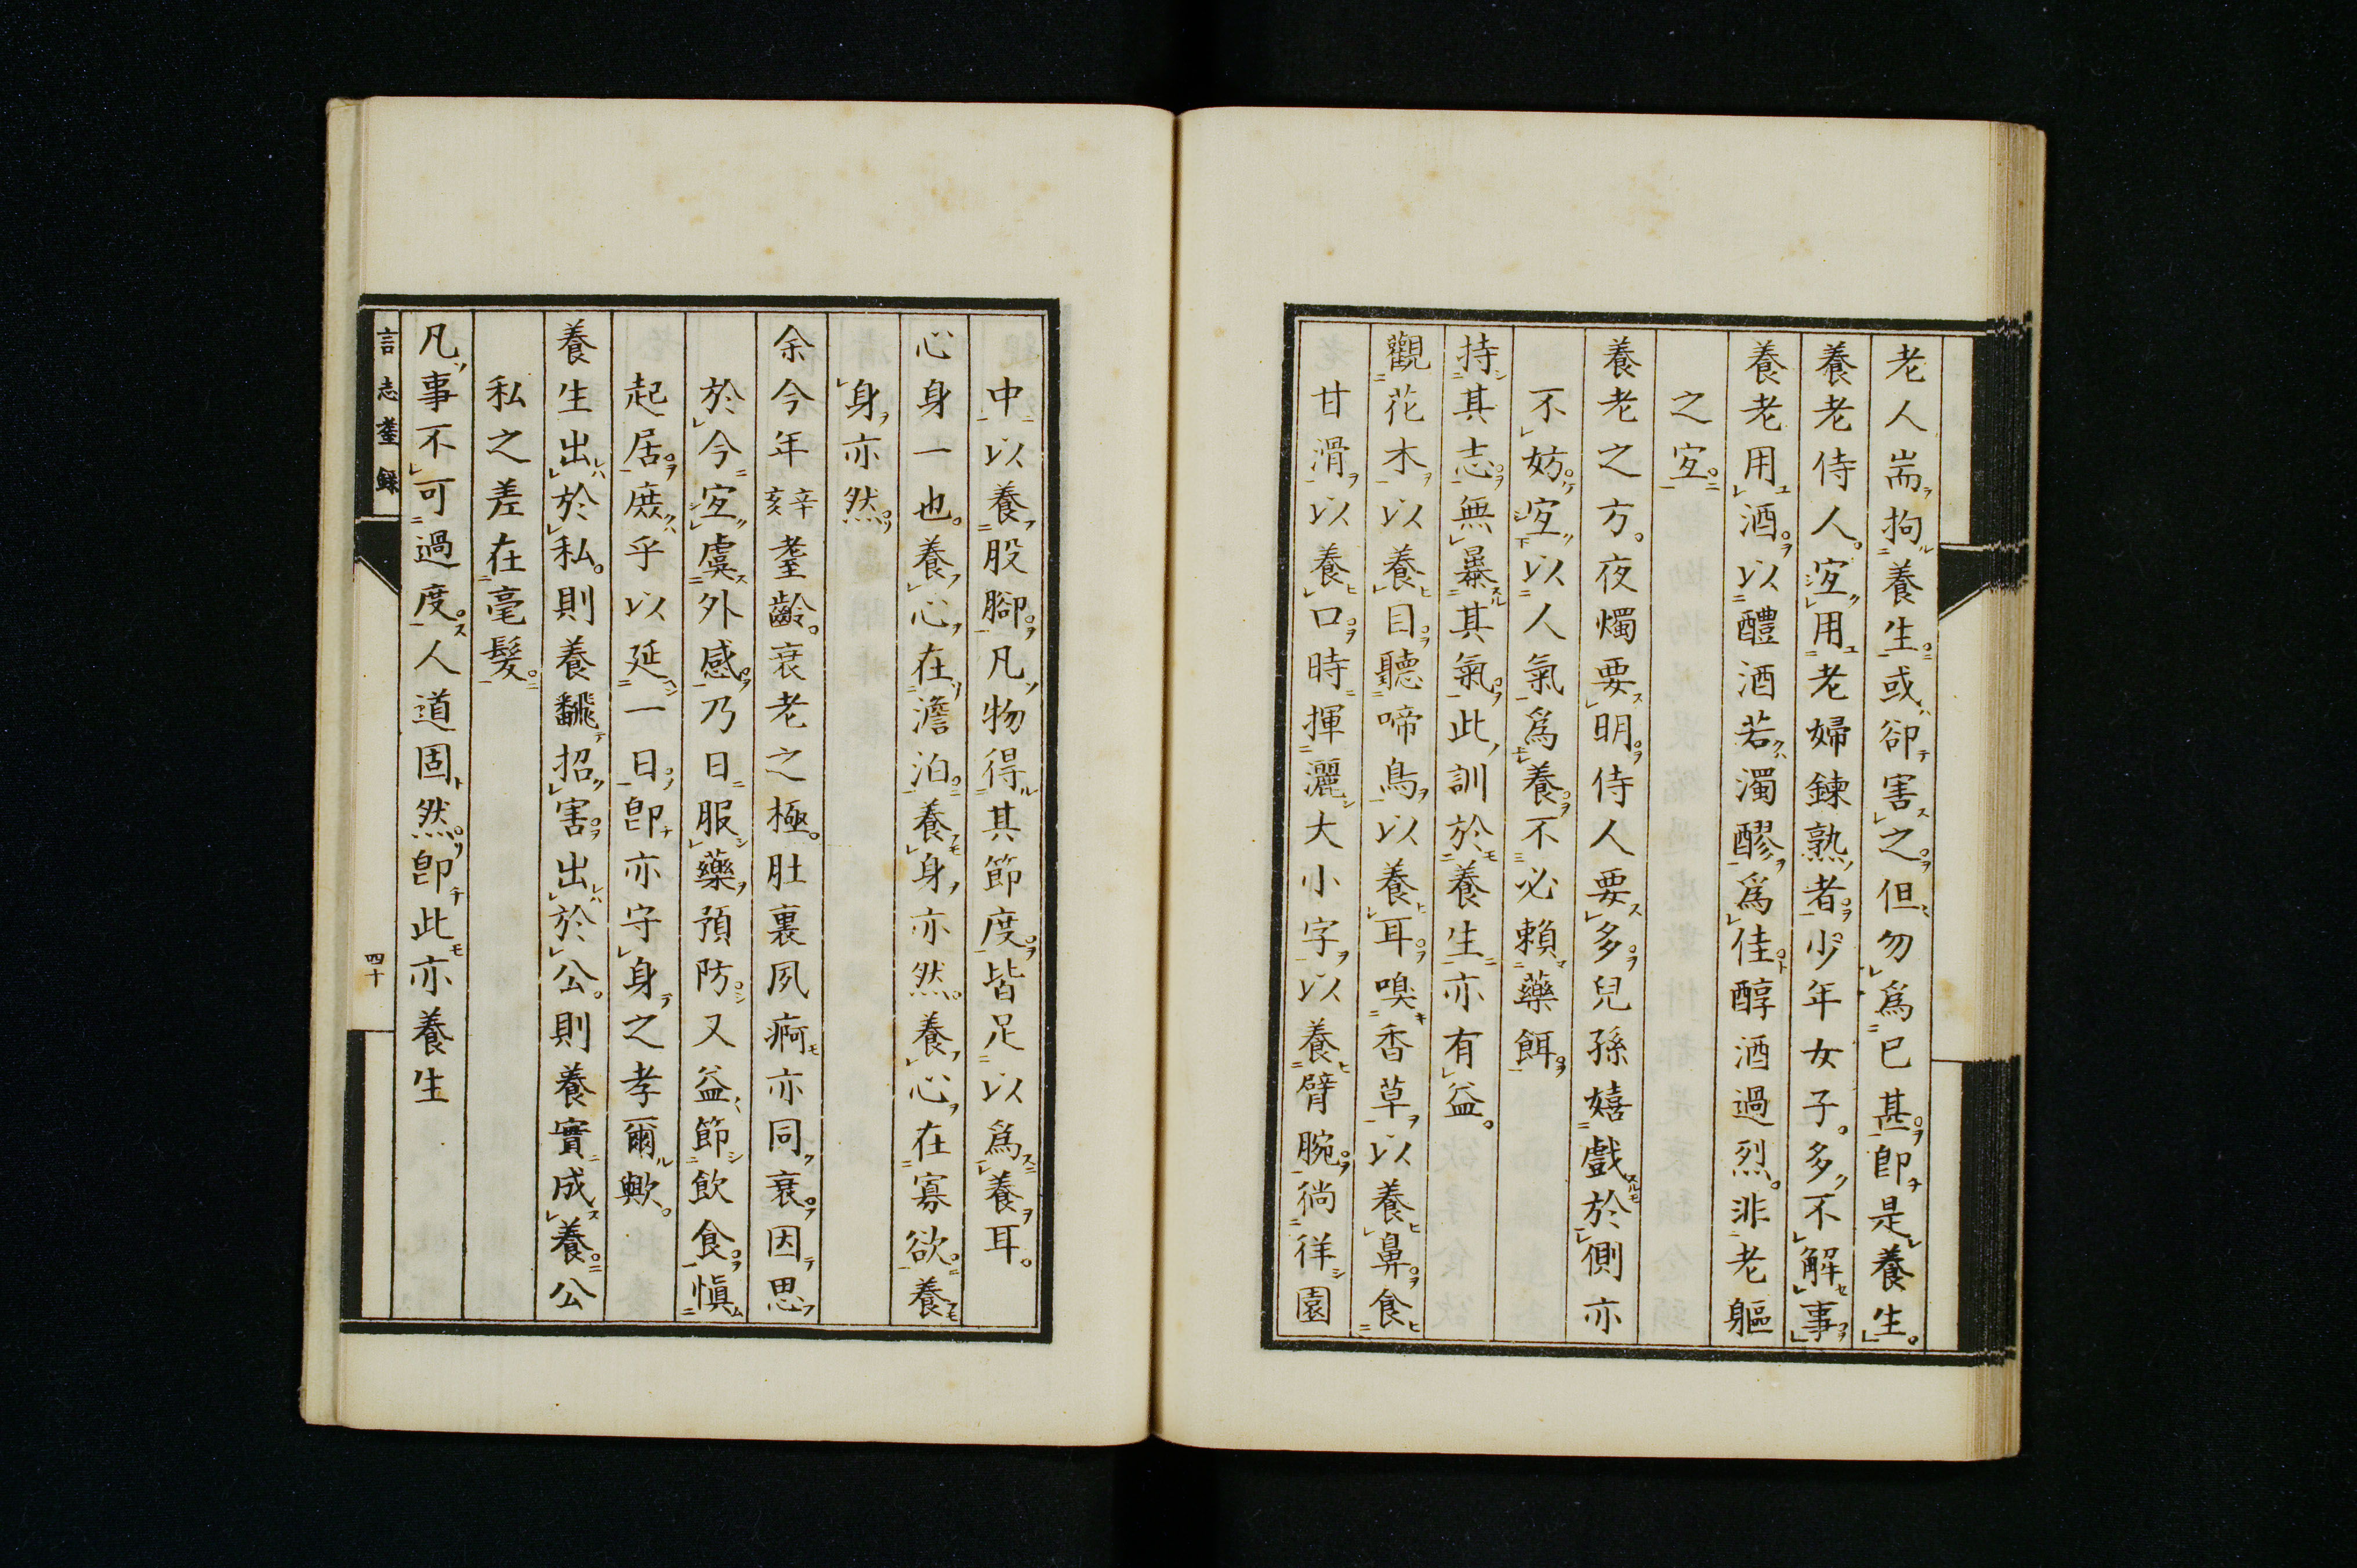 老人耑拘養生。或卻害之。但勿爲已甚。卽是養生。
養老侍人。宐用老婦鍊熟者。少年女子。多不解事
養老用酒。以醴酒若濁醪爲佳。醇酒過烈。非老軀
之宐。
養老之方。夜燭要明。侍人要多。兒孫嬉戲於側亦
不妨。宐以人氣爲養。不必賴藥餌。
持其志。無暴其氣。此訓於養生亦有益。
觀花木以養目。聽啼鳥以養耳。嗅香草以養鼻。食
甘滑以養口。時揮灑大小字以養臂腕。徜徉園
中以養股腳。凡物得其節度。皆足以爲養耳。
心身一也。養心在澹泊。養身亦然。養心在寡欲。養
身亦然。
余今年辛亥耋齡。衰老之極。肚裏夙痾亦同衰。因思
於今宐虞外感。乃日服藥預防。又益節飲食。愼
起居。庶乎以延一日。卽亦守身之孝爾歟。
養生出於私。則養飜招害。出於公。則養實成養。公
私之差在毫髮。
凡事不可過度。人道固然。卽此亦養生
言志耋錄
四十